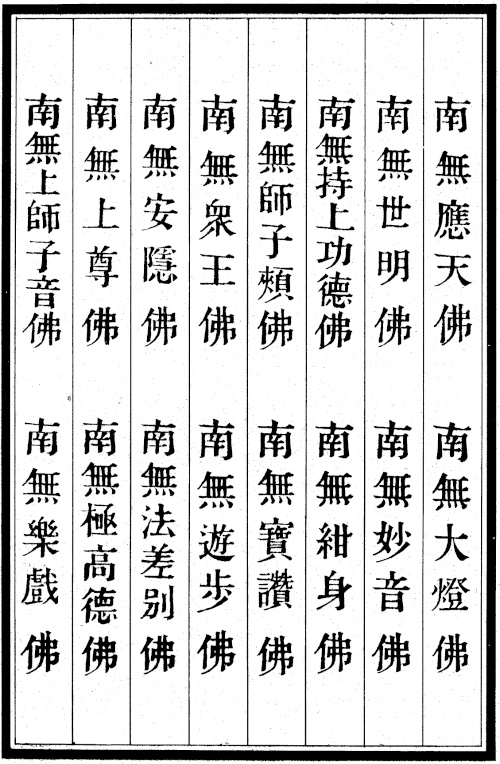 南無應天佛　南無大燈佛
南無世明佛　南無妙音佛
南無持上功德佛　南無紺身佛
南無師子頰佛　南無寶讚佛
南無衆王佛　南無遊步佛
南無安隱佛　南無法差別佛
南無上尊佛　南無極高德佛
南無上師子音佛　南無樂戲佛